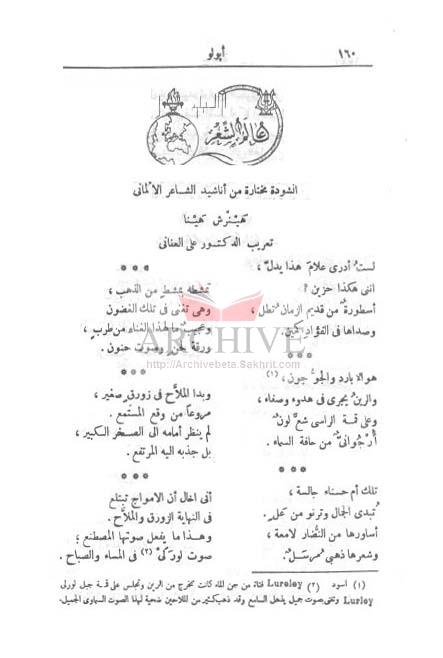 ١٦٠
أبولو
عالم الشعر
انشودة مختارة من أناشيد الشاعر الألمانى
هينرش هينا
تعريب الدكتور على العنانى
لست أدرى علامَ هذا يدلّ ،
اننى هكذا حزين ؟
أسطورة من قديم ازمان تطل ،
وصداها فى الفؤاد كمين .
***
هو الا بارد والجوُّ جون ، (١)
والرين يجرى فى هدوء وصفاء ،
وعلى قمة الراسى شعَّ لون
أرجوانىٌّ من حافة السماء .
***
تلك أم حسناء جالسة ،
تُبدى الجمال وترنو من عل .
أساورها من النُّضار لامعة ،
وشعرها ذهبى مرسَل
***
تمشطه بمشط من الذهب ،
وهى تغنى فى تلك الغضون
وعجيب ما لهذا الغناء من طرب ،
ورقة لحن وصوت حنون .
***
وبدا الملاَّح فى زورق صغير ،
مروعاً من وقع المستمع .
لم ينظر أمامه الى الصخر الكبير ،
بل جذبه اليه المرتفع .
***
أنى اخال أن الامواج تبتلع
فى النهاية الزورق والملاَّح .
وهذا ما يفعل صوتها المصطنع ؛
صوت لورلىْ (٢) فى المساء والصباح .
(١) اسود (٢) Lureley فتاة من جن الماء كانت تخرج من الرين وتجلس على قمة جبل لورلى
Lurley وتغنى بصوت جميل يذهل السامع وقد ذهب كثير من الملاحين ضحية لهذا الصوت السماوى الجميل.
ARCHIVE
http://Archivebeta.Sakhrit.com